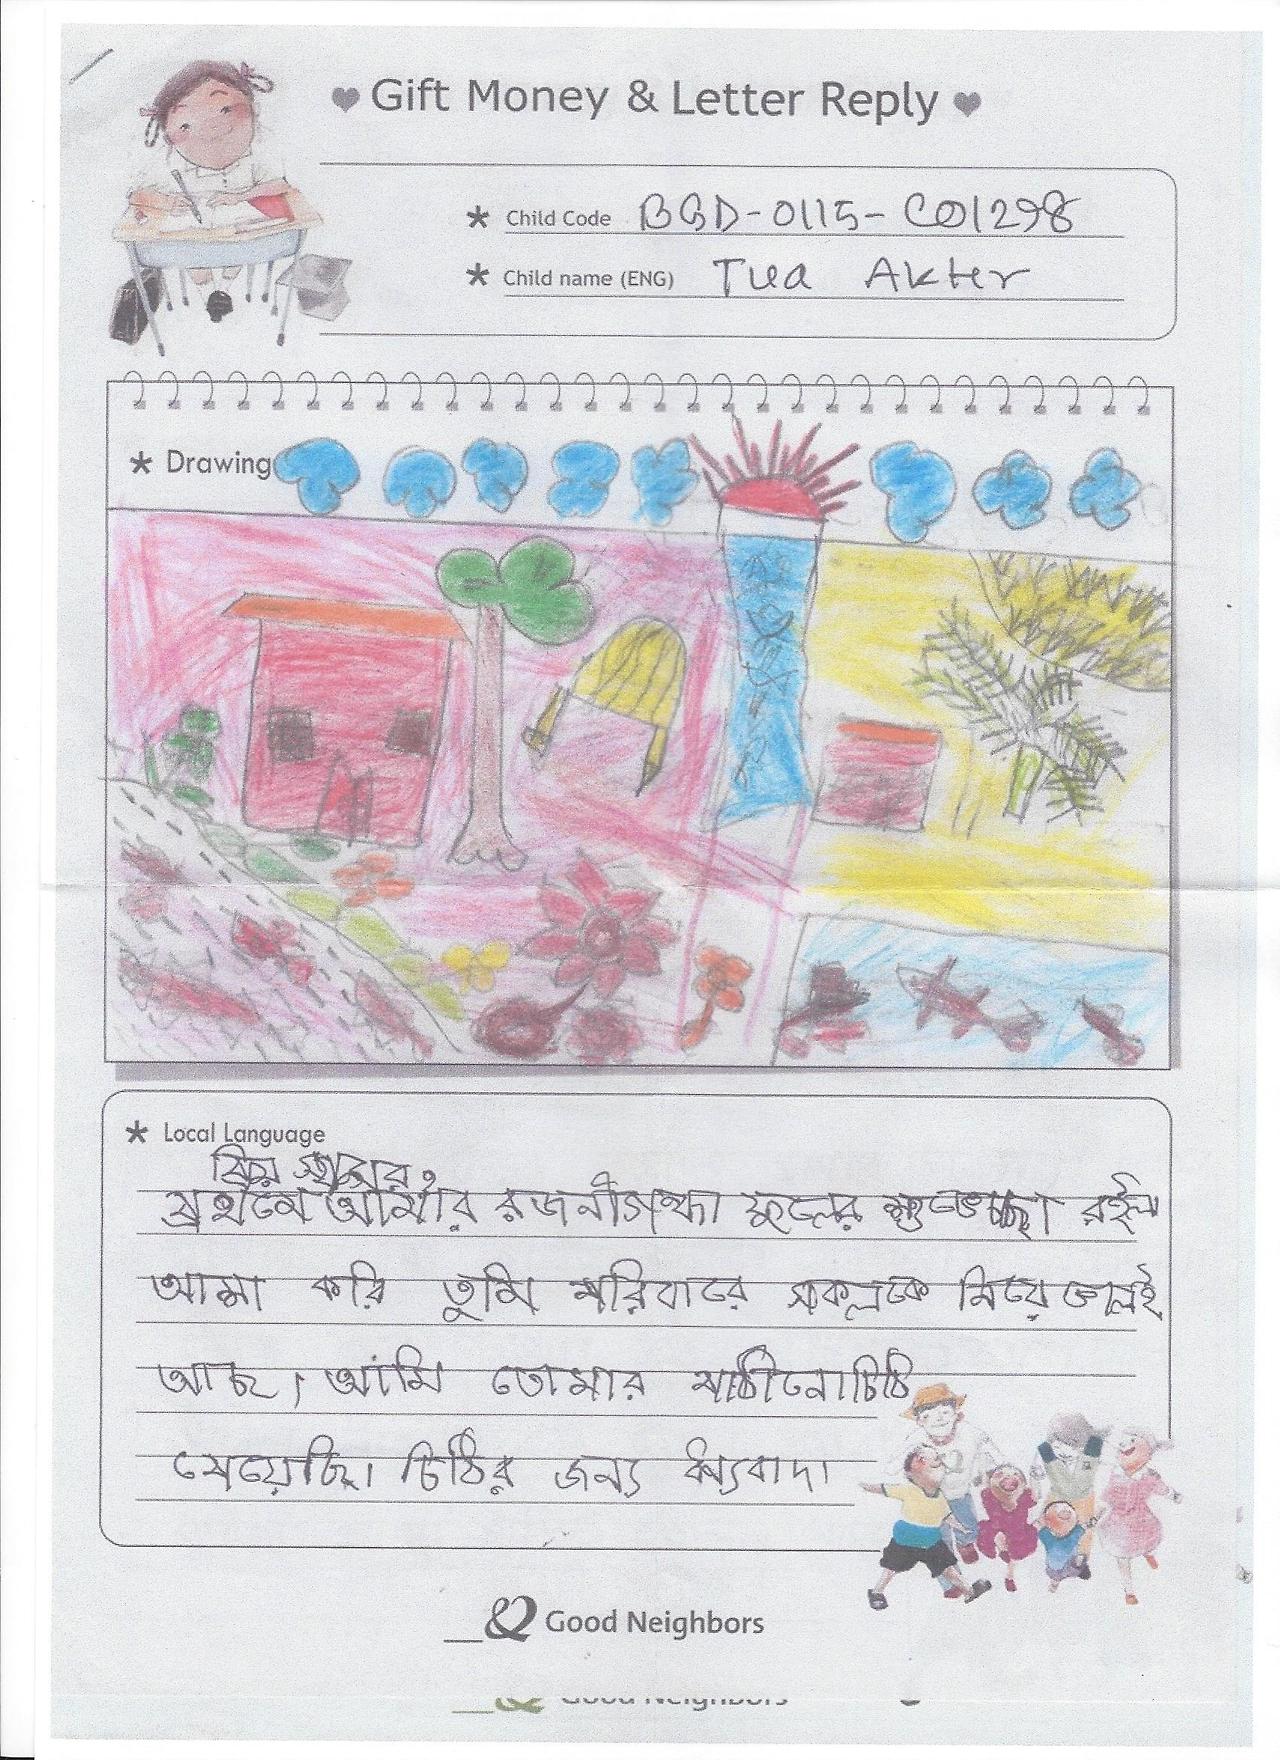 Gift Money & Letter Reply
* Child Code BGD-0115-C01298
* Child name (ENG) Tua Akter
* Drawing
* Local Language
প্রিয় স্পন্সর,
প্রথমে আমার রজনীগন্ধা ফুলের শুভেচ্ছা রইল
আশা করি তুমি পরিবারের সকলকে নিয়ে ভালই
আছ। আমি তোমার পাঠানো চিঠি
পেয়েছি। চিঠির জন্য ধন্যবাদ।
Good Neighbors
Good Neighbors